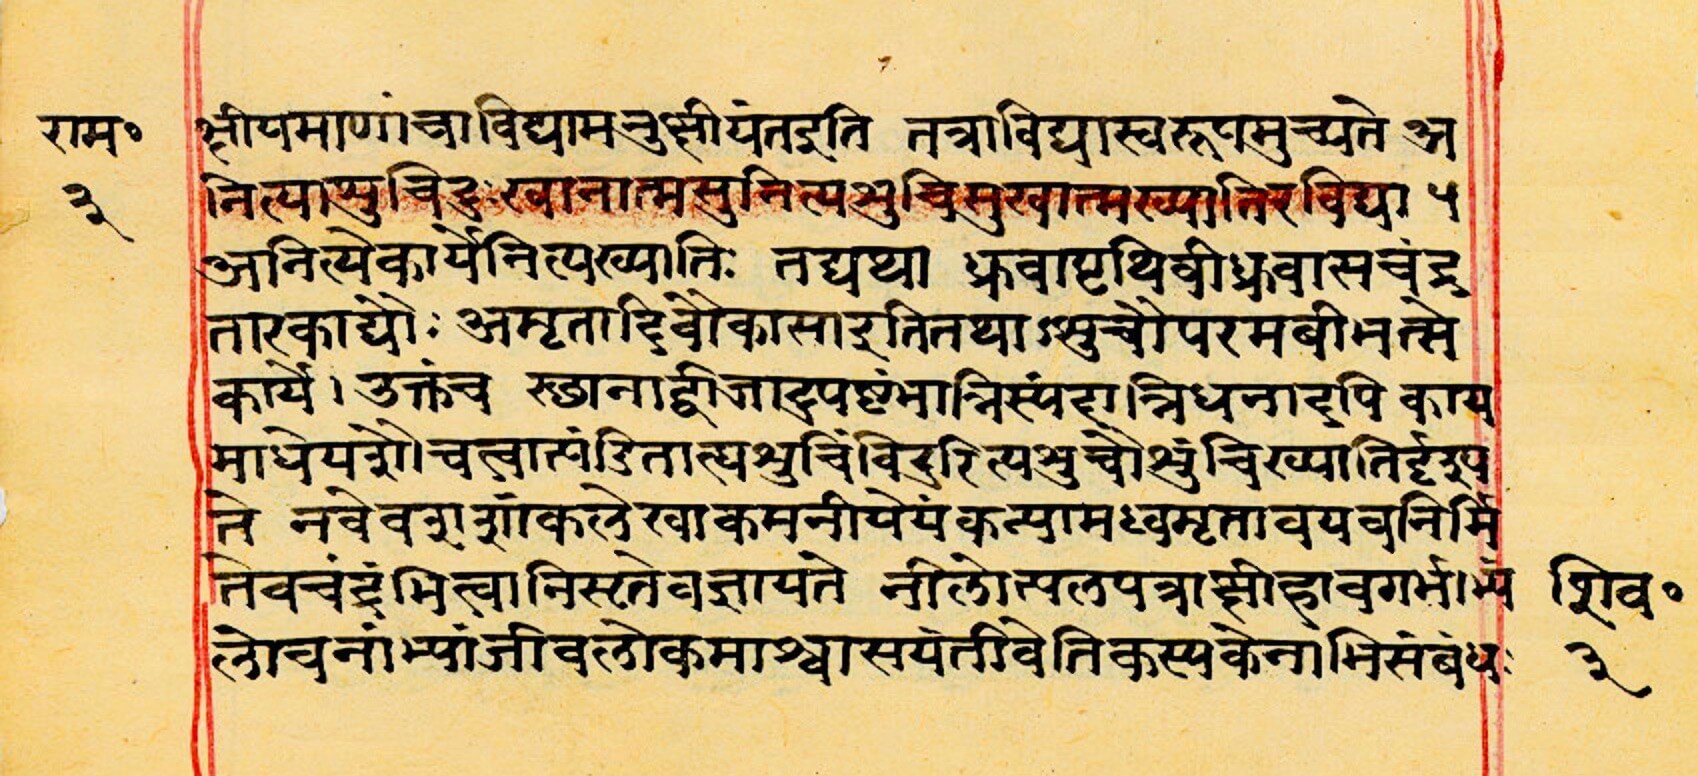 राम॰ क्षीयमाणांचाविद्यामनुक्षीयंतइति तत्राविद्यास्वरूपमुच्यते अ
३ नित्यासुचिदुःखानात्मसुनित्यशुचिसुखात्मख्यातिरविद्या ५
अनित्येकार्येनित्यख्यातिः तद्यथा ध्रुवापृथिवीध्रुवासचंद्र
तारकाद्यौः अमृतादिवौकासाइतितथाऽसुचौपरमबीभत्से
कार्ये। उक्तंच स्छानाद्वीजादुपष्टंभान्निस्यंदान्निधनादपि काय
माधेयशौ।चत्वात्पंडितात्यशुचिंविदुरित्यशुचौशुंचिख्यातिर्दृइप
ते नवेवशशांकलेखाकमनीयेयंकन्यामध्वमृतावयवनिर्मि
तेवचंद्रंभित्वानिसृतेवज्ञायते नीलोत्पलपत्राक्षीहावगर्भाभ्यं शिव॰
लोचनांभ्यांजीवलोकमाश्वासयंतीवेतिकस्यकेनाभिसंबंधः ३